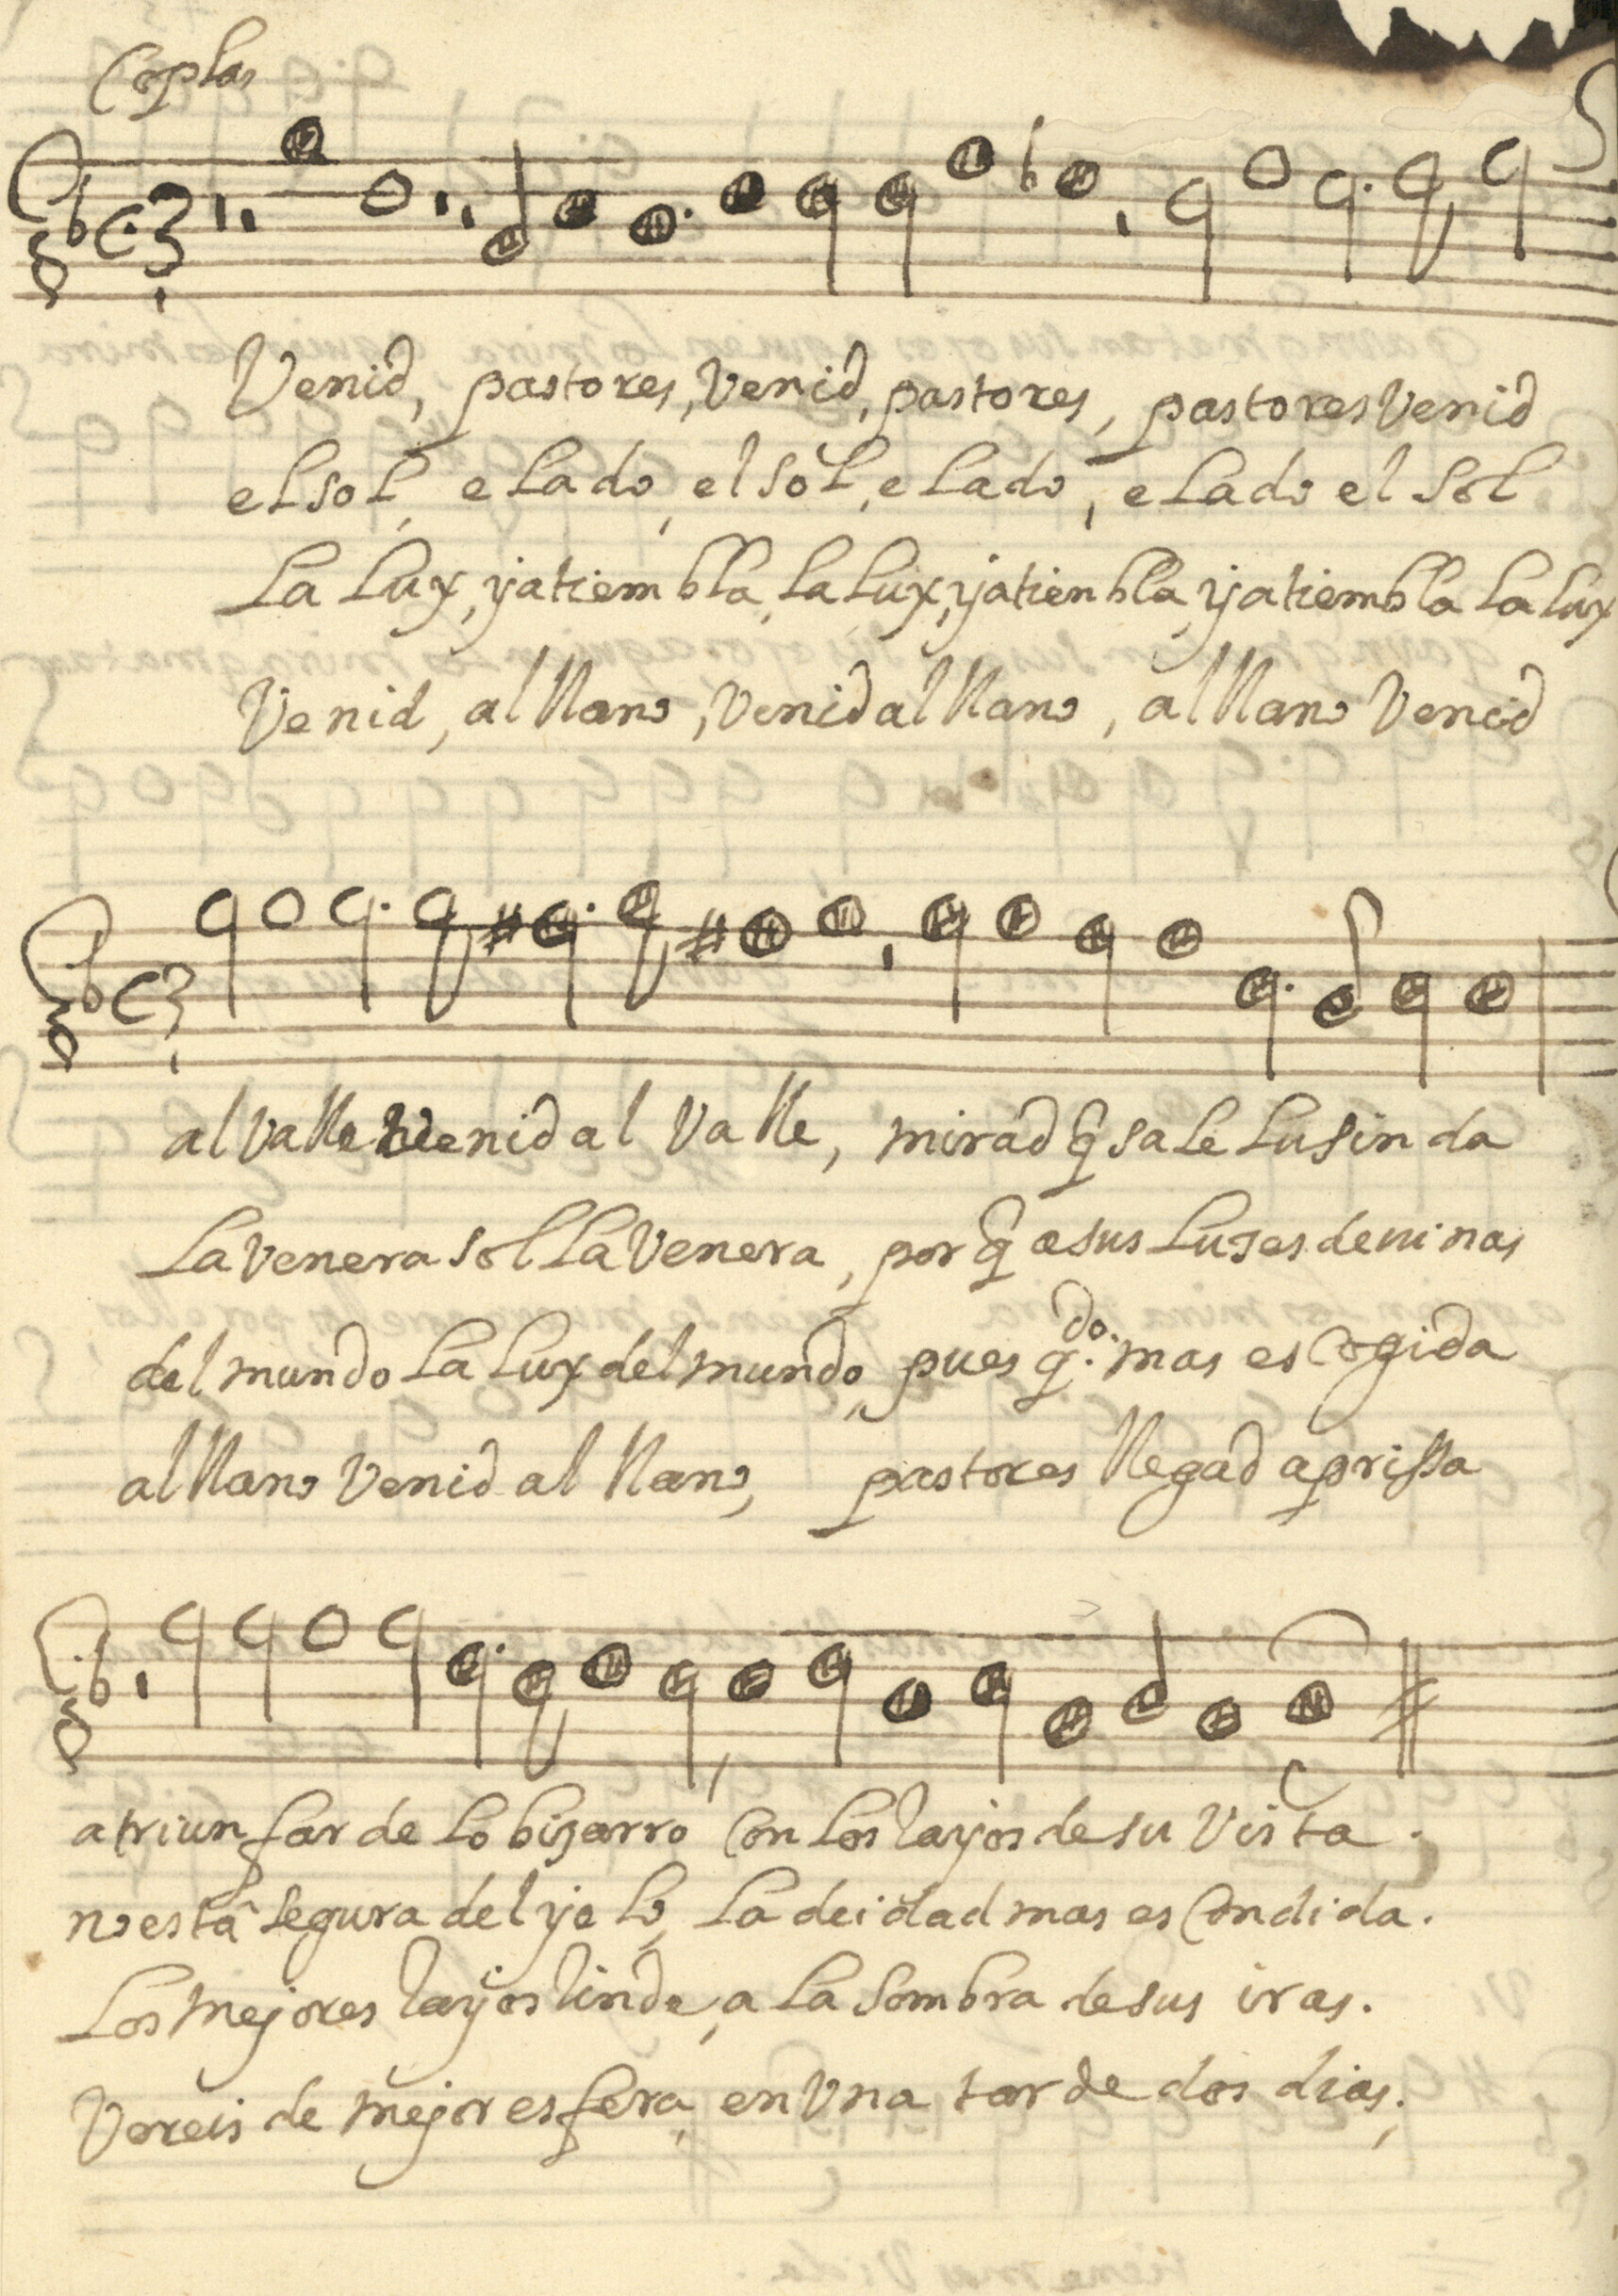 Coplas
Venid, pastores, Venid, pastores, pastores Venid
el sol, elado, el sol, elado, elado el sol
La Lux, ya tiembla, La Lux, ya tienbla, ya tiembla La Lux
Venid, al llano, Venid al llano, al llano Venid
al Valle Venid al Valle, mirad q̃ sale Lusinda
La Venera sol La Venera, por q̃ a sus Luses deuinas
del mundo La Lux del mundo, pues q.do mas escogida
al llano Venid al llano, pastores llegad aprissa
a triunfar de Lo bizarro Con Los rayos de su Vista.
no está segura del yelo, La deidad mas escondida.
Los mejores rayos rinde, a La sombra de sus iras.
Vereis de mejor esfera, en Vna tarde dos dias.